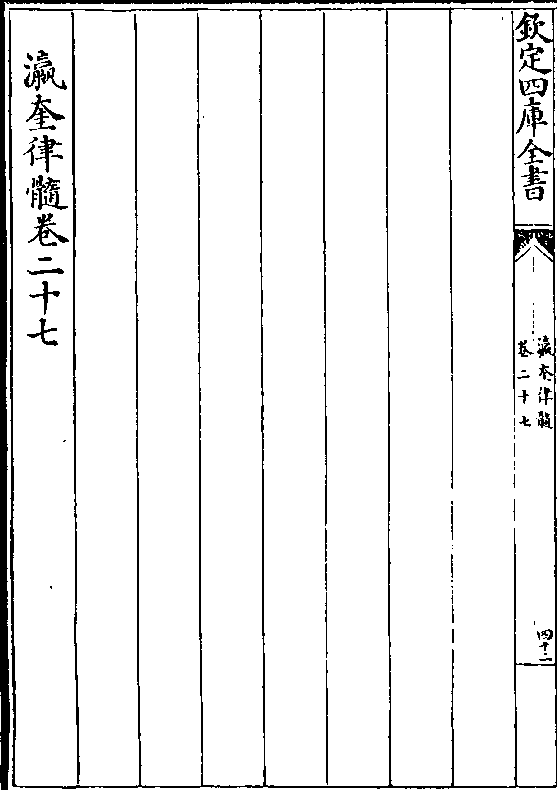 欽定四庫全書
瀛奎律髓
卷二十七
四十二
瀛奎律髓卷二十七